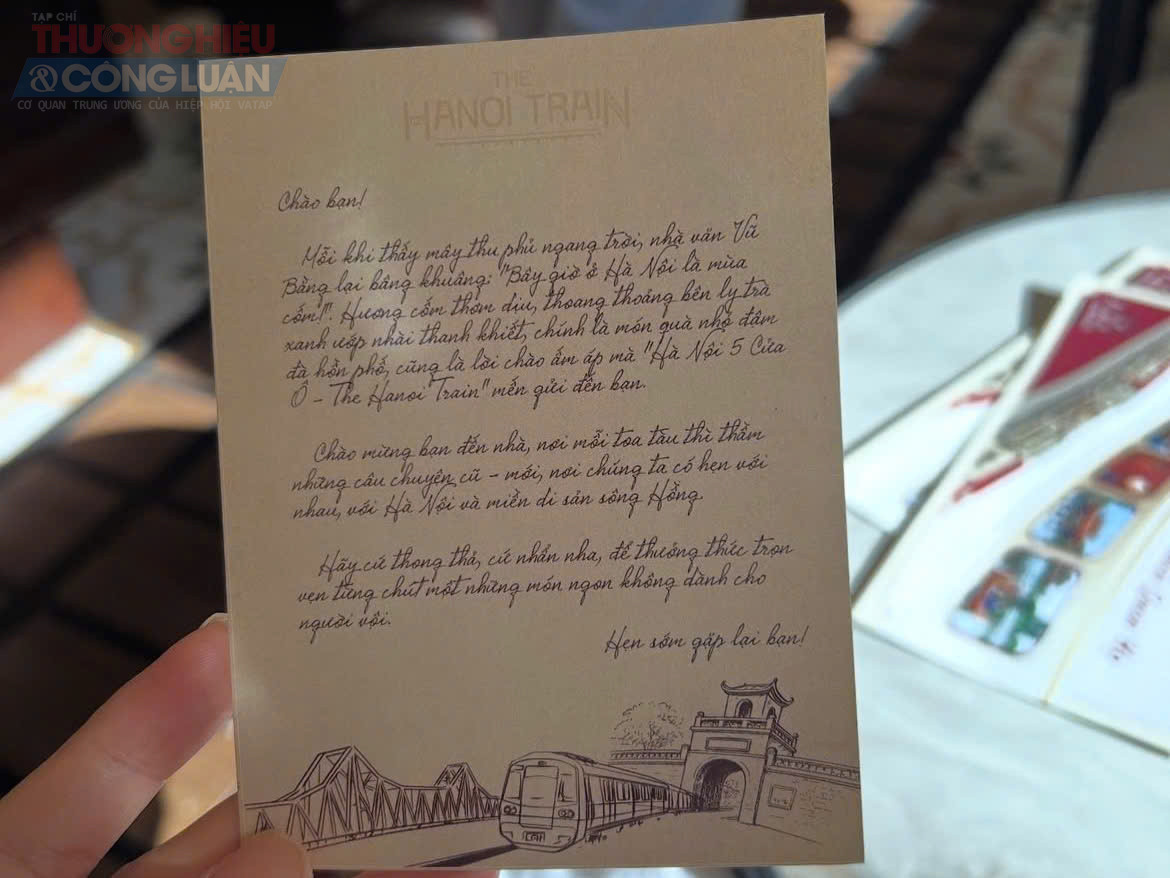 TẠP CHÍ
THƯƠNG HIỆU
& CÔNG LUẬN
CƠ QUAN TRUNG ƯƠNG CỦA HIỆP HỘI VATAP
THE
HANOI TRAIN
Chào bạn!
Mỗi khi thấy mây thu phủ ngang trời, nhà văn Vũ
Bằng lại bâng khuâng: "Bây giờ ở Hà Nội là mùa
cốm!". Hương cốm thơm dịu, thoang thoảng bên ly trà
xanh ướp nhài thanh khiết, chính là món quà nhỏ đậm
đà hồn phố, cũng là lời chào ấm áp mà "Hà Nội 5 Cửa
Ô - The Hanoi Train" mến gửi đến bạn.
Chào mừng bạn đến nhà, nơi mỗi toa tàu thì thầm
những câu chuyện cũ - mới, nơi chúng ta có hẹn với
nhau, với Hà Nội và miền di sản sông Hồng.
Hãy cứ thong thả, cứ nhẩn nha, để thưởng thức trọn
vẹn từng chút một những món ngon không dành cho
người vội.
Hẹn sớm gặp lại bạn!